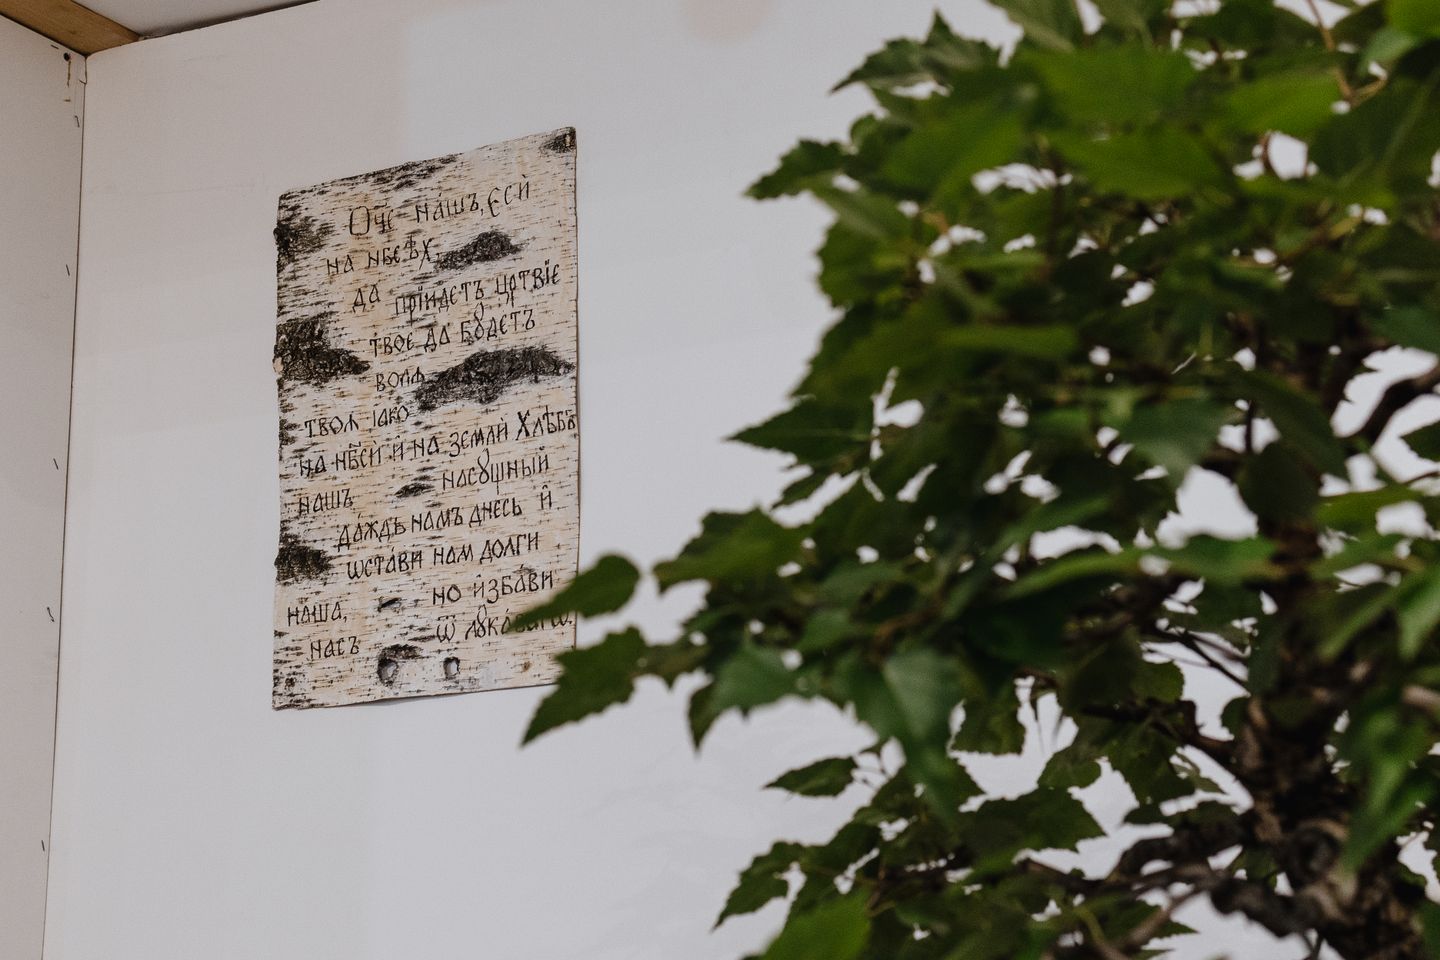 Ѻч҃е на́шъ, Єсѝ
на нб҃сѣхъ
да прїидетъ црⷭ҇твїе
твое да бꙋ́детъ
волѧ
твоѧ ꙗко
на нб҃сѝ и҆ на землѝ Хлѣбъ
нашъ насꙋщный
да́ждь намъ днєсь и҆
ѡста́ви нам долги
наша, но и҆збави
насъ ѿ лꙋка́вагѡ.